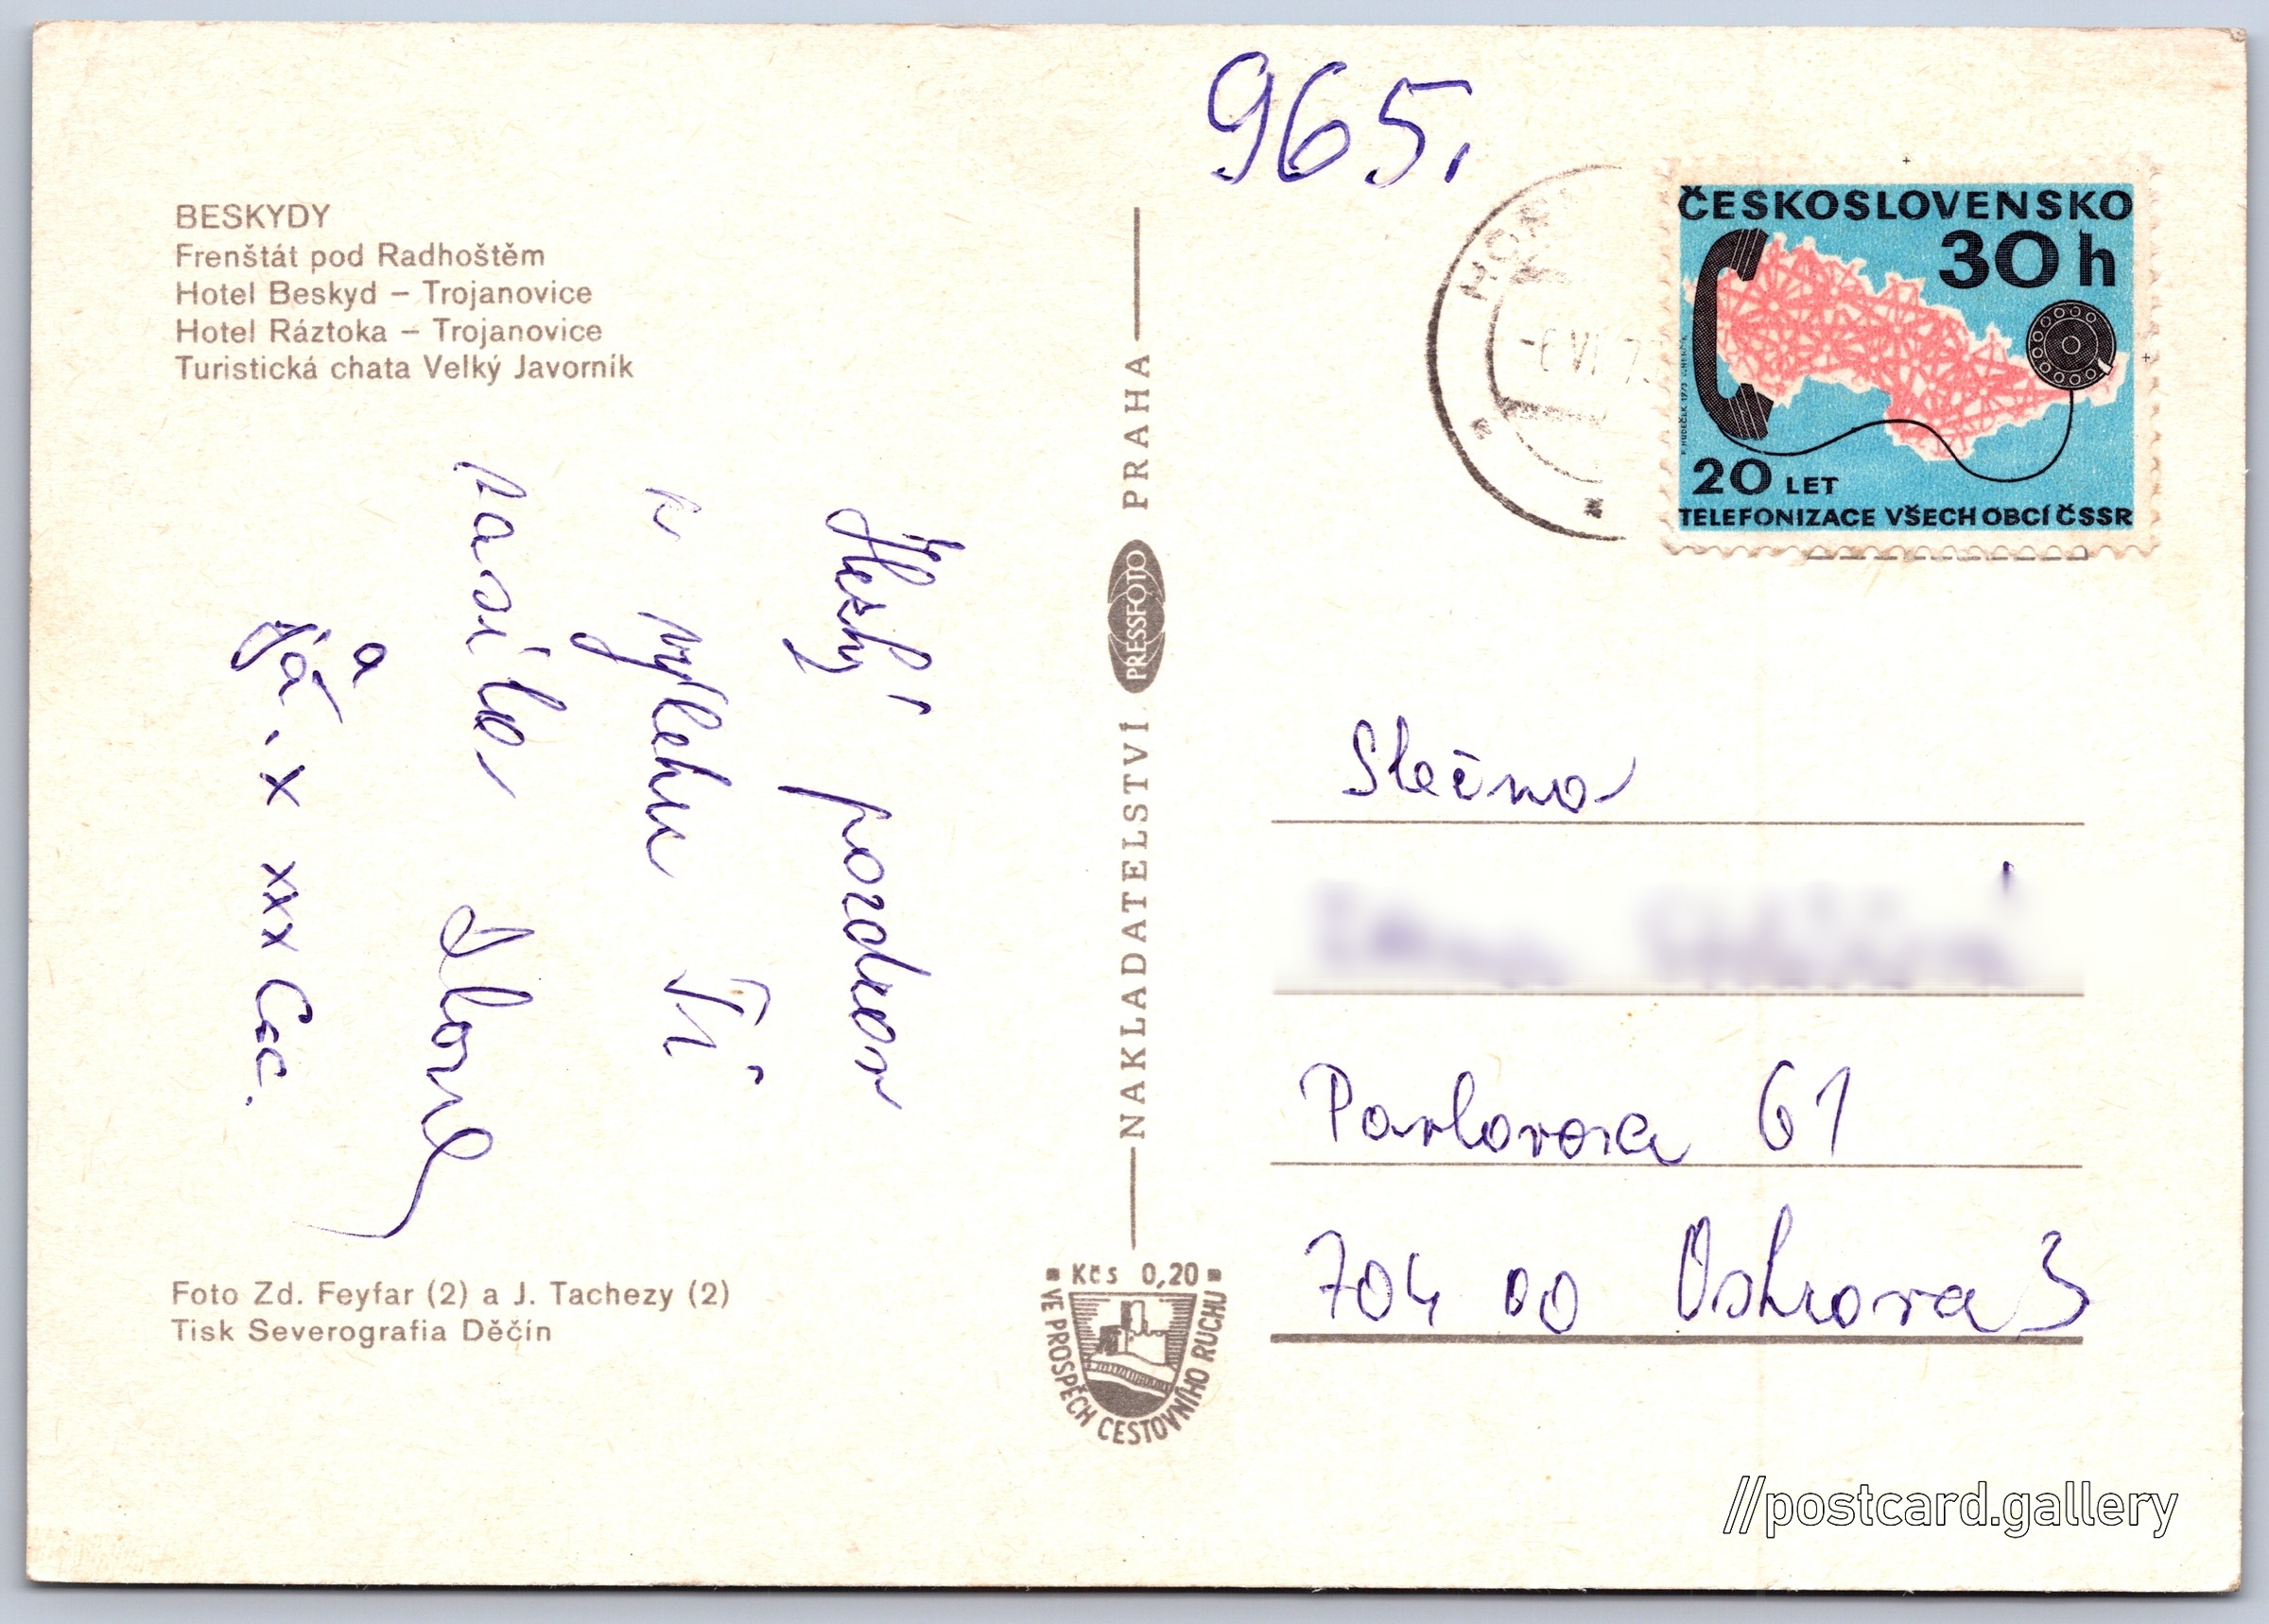 965.
BESKYDY
Frenštát pod Radhoštěm
Hotel Beskyd – Trojanovice
Hotel Ráztoka – Trojanovice
Turistická chata Velký Javorník
Hezký pozdrav
z výletu Ti
zasílá
a
Já . x xxx
Foto Zd. Feyfar (2) a J. Tachezy (2)
Tisk Severografia Děčín
NAKLADATELSTVÍ PRESSFOTO PRAHA
Kčs 0,20
VE PROSPĚCH CESTOVNÍHO RUCHU
ČESKOSLOVENSKO
30 h
20 LET
TELEFONIZACE VŠECH OBCÍ ČSSR
Slečna
Pavlovova 61
704 00 Ostrava 3
//postcard.gallery